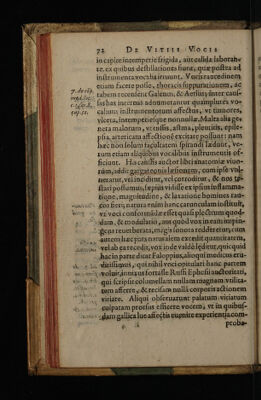 72 DE VITIIS VOCIS
in capite intemperie frigida, aut calida laboran-
te, ex quibus destillationes fiunt, quæ postea ad
instrumenta vocalia irruunt.
etiam facere posse, thoracis suppurationem, ac
tabem recenseret Galenus, & Aetius, inter causas
has internas adnumerantur quamplures vo-
calium instrumentorum affectus, vt tumores,
vlcera, intemperiesque nonnullæ. Multa alia ge-
nera malorum, vt tussis, asma, pleuritis, epile-
psia, arteriam affectionē excitare possunt: nam
hæc non solum facultatem spirandi lædunt, ve-
rum etiam aliquibus vocalibus instrumentis of-
ficiunt. His causis auctor libri anatomiæ viuo-
rum, addit gargareonis læsionem, cum ipse vul-
neratur, vel inciditur, vel corroditur, & nos te-
stari possumus, sæpius vidisse ex ipsius inflamma-
tione, magnitudine, & laxatione homines rau-
cos fieri; natura enim hanc carunculam instituit,
vt voci conformādæ esset quasi plectrum quod-
dam, & modulatio, in qua
gens reuerberata, magis sonora redderetur, cum
autem hæc præter naturalem excedit quantitatem,
vel ab ea recedit, vox inde valdè læditur, quicquid
hac in parte dicat Faloppius, alioqui medicus eru-
ditissimus, qui nihil voci opitulari hanc partem
voluit, innixus fortasse Ruffi Ephesij auctoritati,
qui scripsit columellam nullam magnam vtilita-
tem afferre, & recisam nulli corporis actionem
vitiare. Aliqui obseruarunt palatum vitiatum
culpatam prorsus efficere vocem, vt in quibus-
dam gallica lue affectis euenire experientia com-
proba-